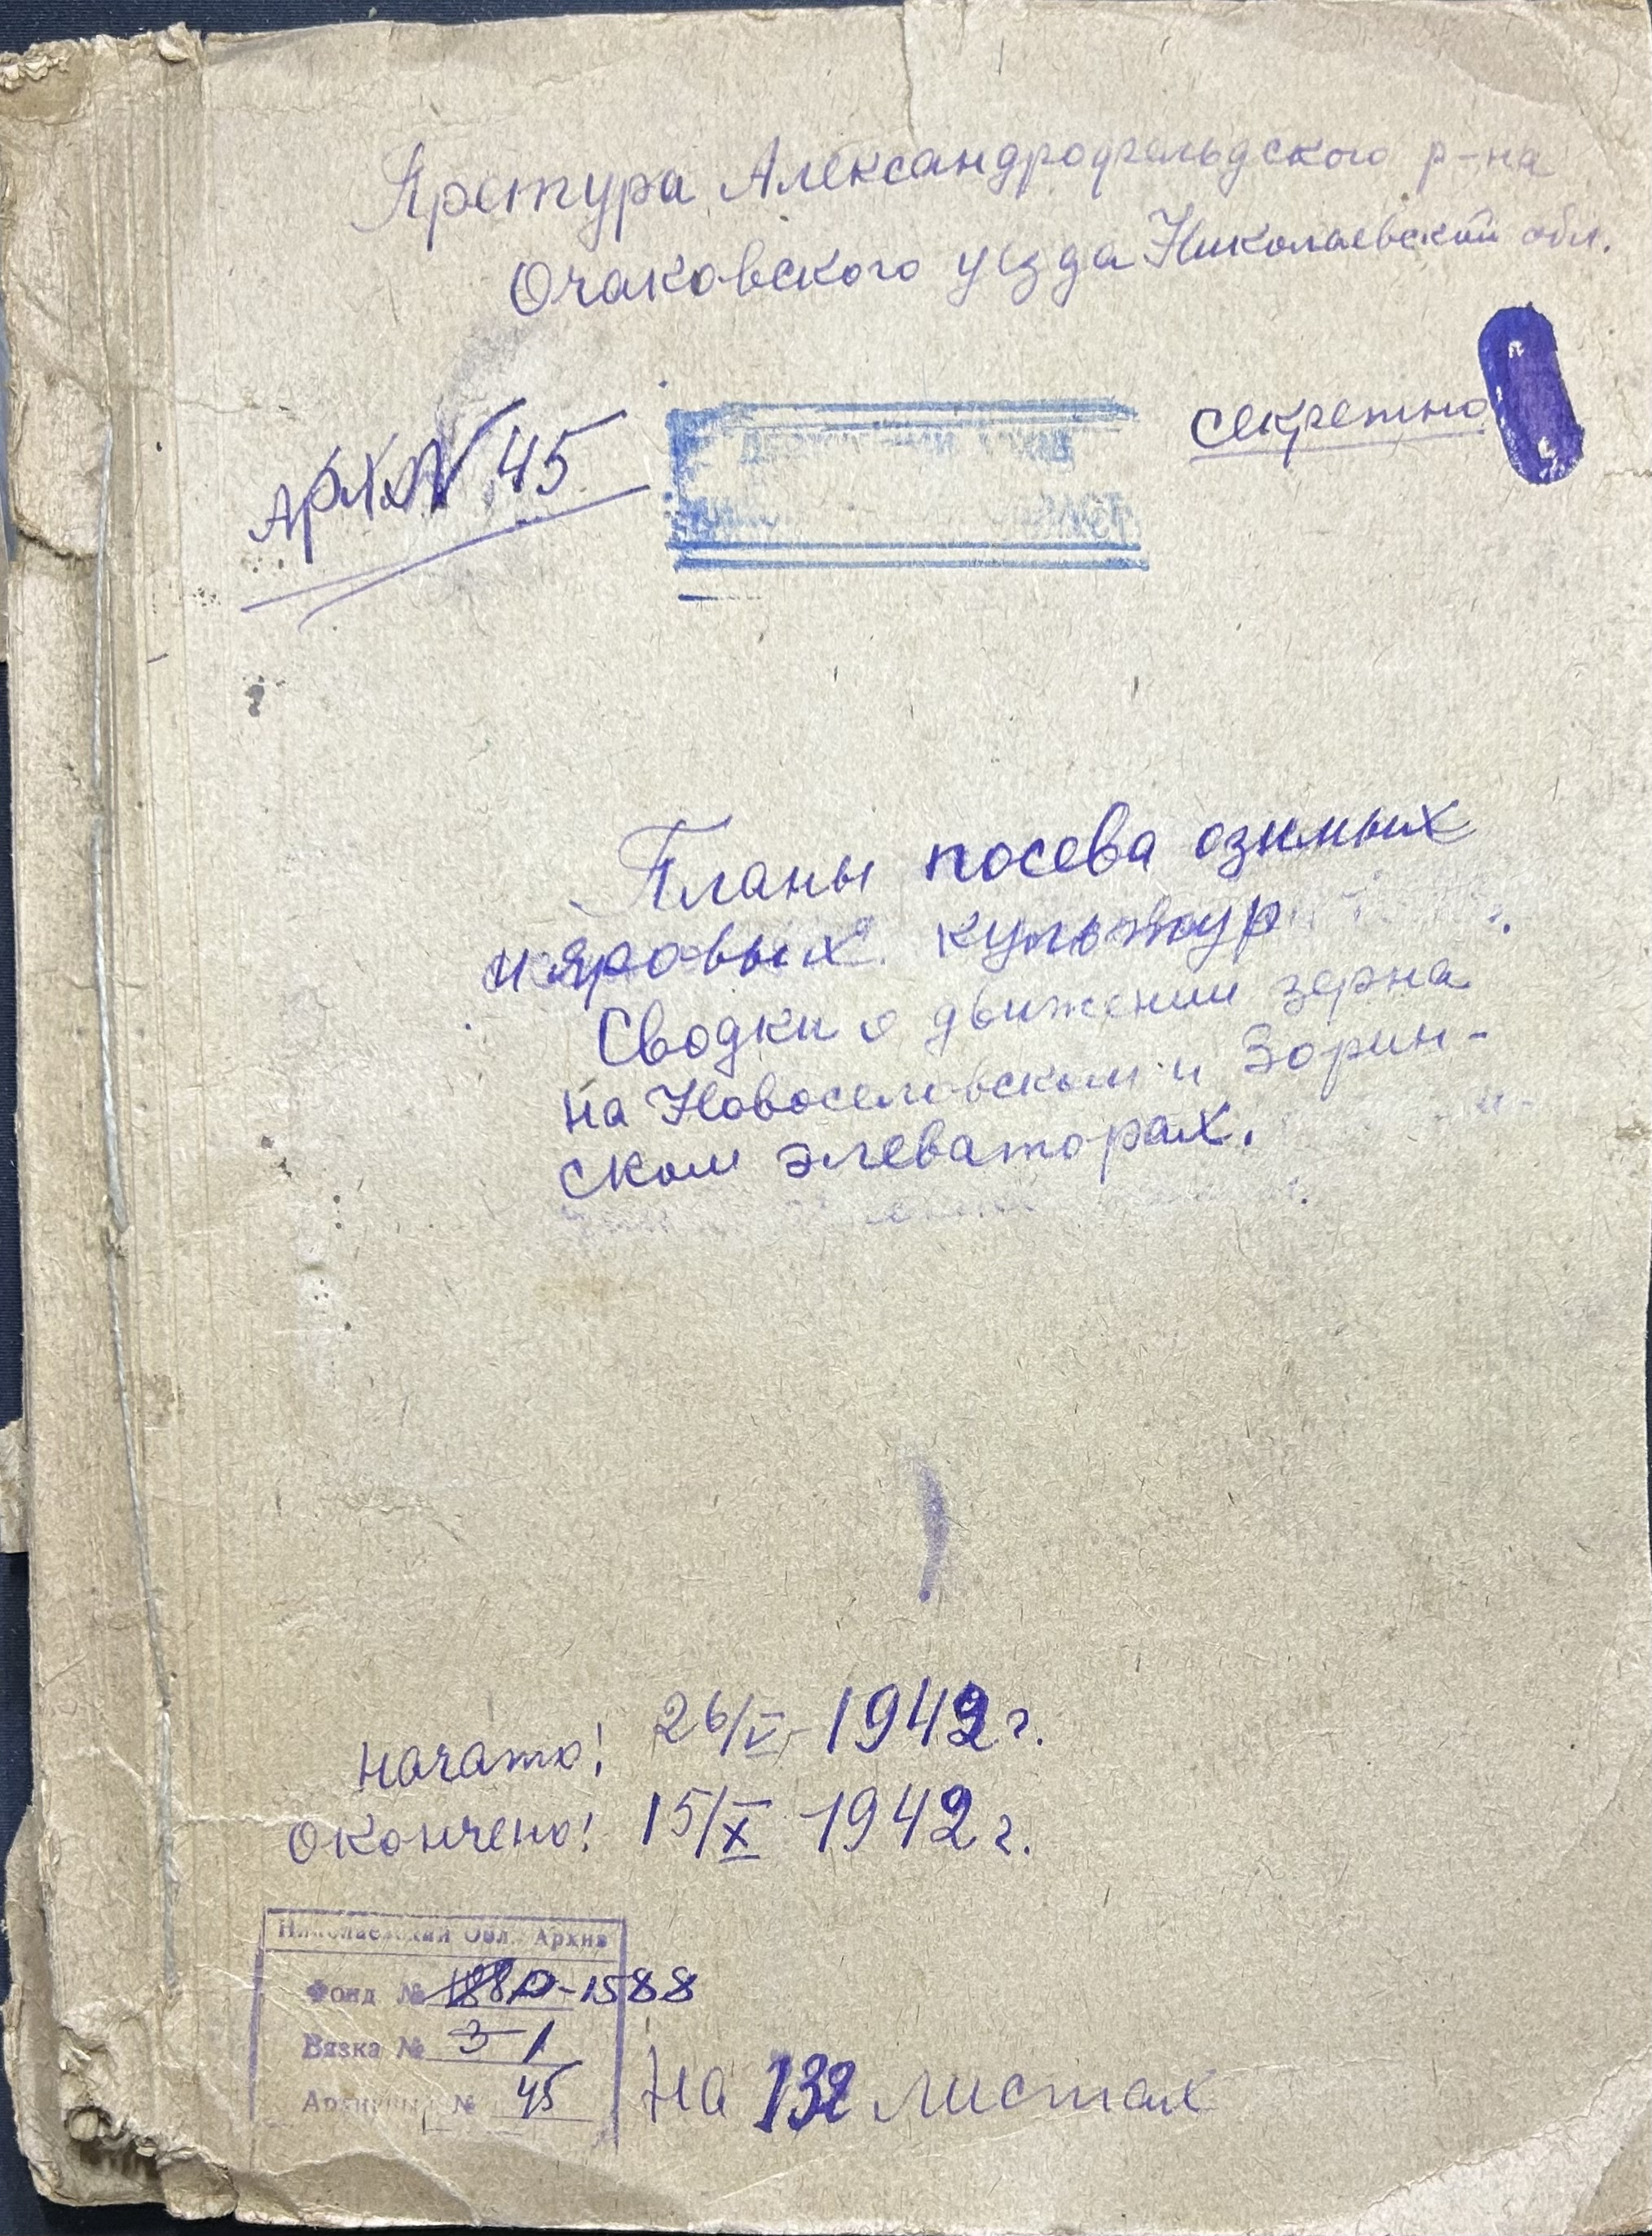 Претура Александрофельдского р-на
Очаковского уезда Николаевской обл.
секретно
Арх № 45
Планы посева озимых
и яровых культур
Сводки о движении зерна
на Новоселовском и Зорин-
ском элеваторах.
начато! 26/V- 1942 г.
окончено! 15/X - 1942 г.
Николаевский Обл. Архив
Фонд № Р-1588
Вязка № 3 1
Архивный № 45
На 132 листах